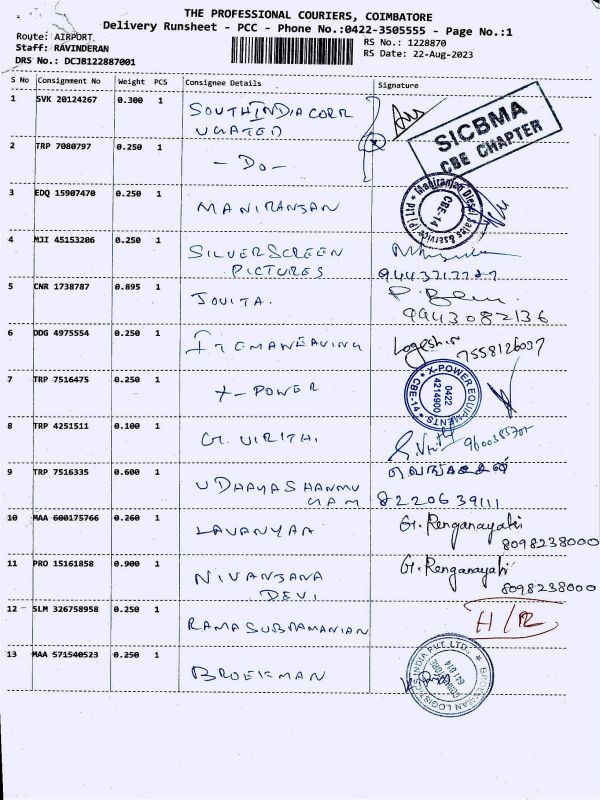 THE PROFESSIONAL COURIERS, COIMBATORE
Delivery Runsheet - PCC - Phone No.:0422-3505555 - Page No.:1
Route: AIRPORT
Staff: RAVINDERAN
DRS No.: DCJB122887001
RS No.: 1228870
RS Date: 22-Aug-2023
S No Consignment No Weight PCS Consignee Details Signature
1 SVK 20124267 0.300 1 SOUTH INDIA CORR
UGATED
SICBMA
CBE CHAPTER
2 TRP 7080797 0.250 1 - DO -
3 EDQ 15907470 0.250 1 MANIRANJAN
Maniranjan Diesel Sales & Service (P) Ltd
CBE-14
4 MJI 45153206 0.250 1 SILVERSCREEN
PICTURES
5 CNR 1738787 0.895 1 JOVITA.
9943082136
6 DDG 4975554 0.250 1 ITEMAWEAVING
Logesh.n
7558126037
7 TRP 7516475 0.250 1 X-POWER
X-POWER EQUIPMENTS
CBE-14
0422
4214900
8 TRP 4251511 0.100 1 G. VIRITHI.
9 TRP 7516335 0.600 1 UDHAYASHANMU
GAM
8220639111
10 MAA 600175766 0.260 1 LAVANYAA
G. Renganayaki
8098238000
11 PRO 15161858 0.900 1 NIVANJANA
DEVI
G. Renganayaki
8098238000
12 SLM 326758958 0.250 1 RAMASUBRAMANIAN
13 MAA 571540523 0.250 1 BROEKMAN
BROEKMAN LOGISTICS INDIA PVT. LTD.
COIMBATORE
641 014